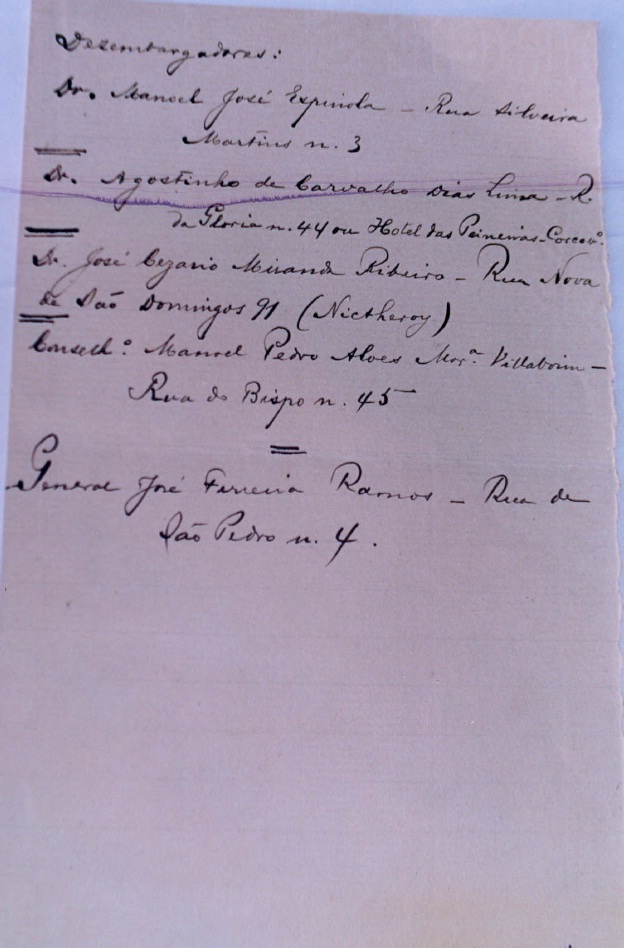 Desembargadores:
Dr. Manoel José Espinola - Rua Silveira
Martins n. 3
Dr. Agostinho de Carvalho Dias Lima - R.
da Gloria n. 44 ou Hotel das Paineiras-Corcovº.
Dr. José Cezario Miranda Ribeiro - Rua Nova
de São Domingos 91 (Nictheroy)
Conselhº. Manoel Pedro Alves Morª. Villaboim -
Rua do Bispo n. 45
General José Ferreira Ramos - Rua de
São Pedro n. 4.